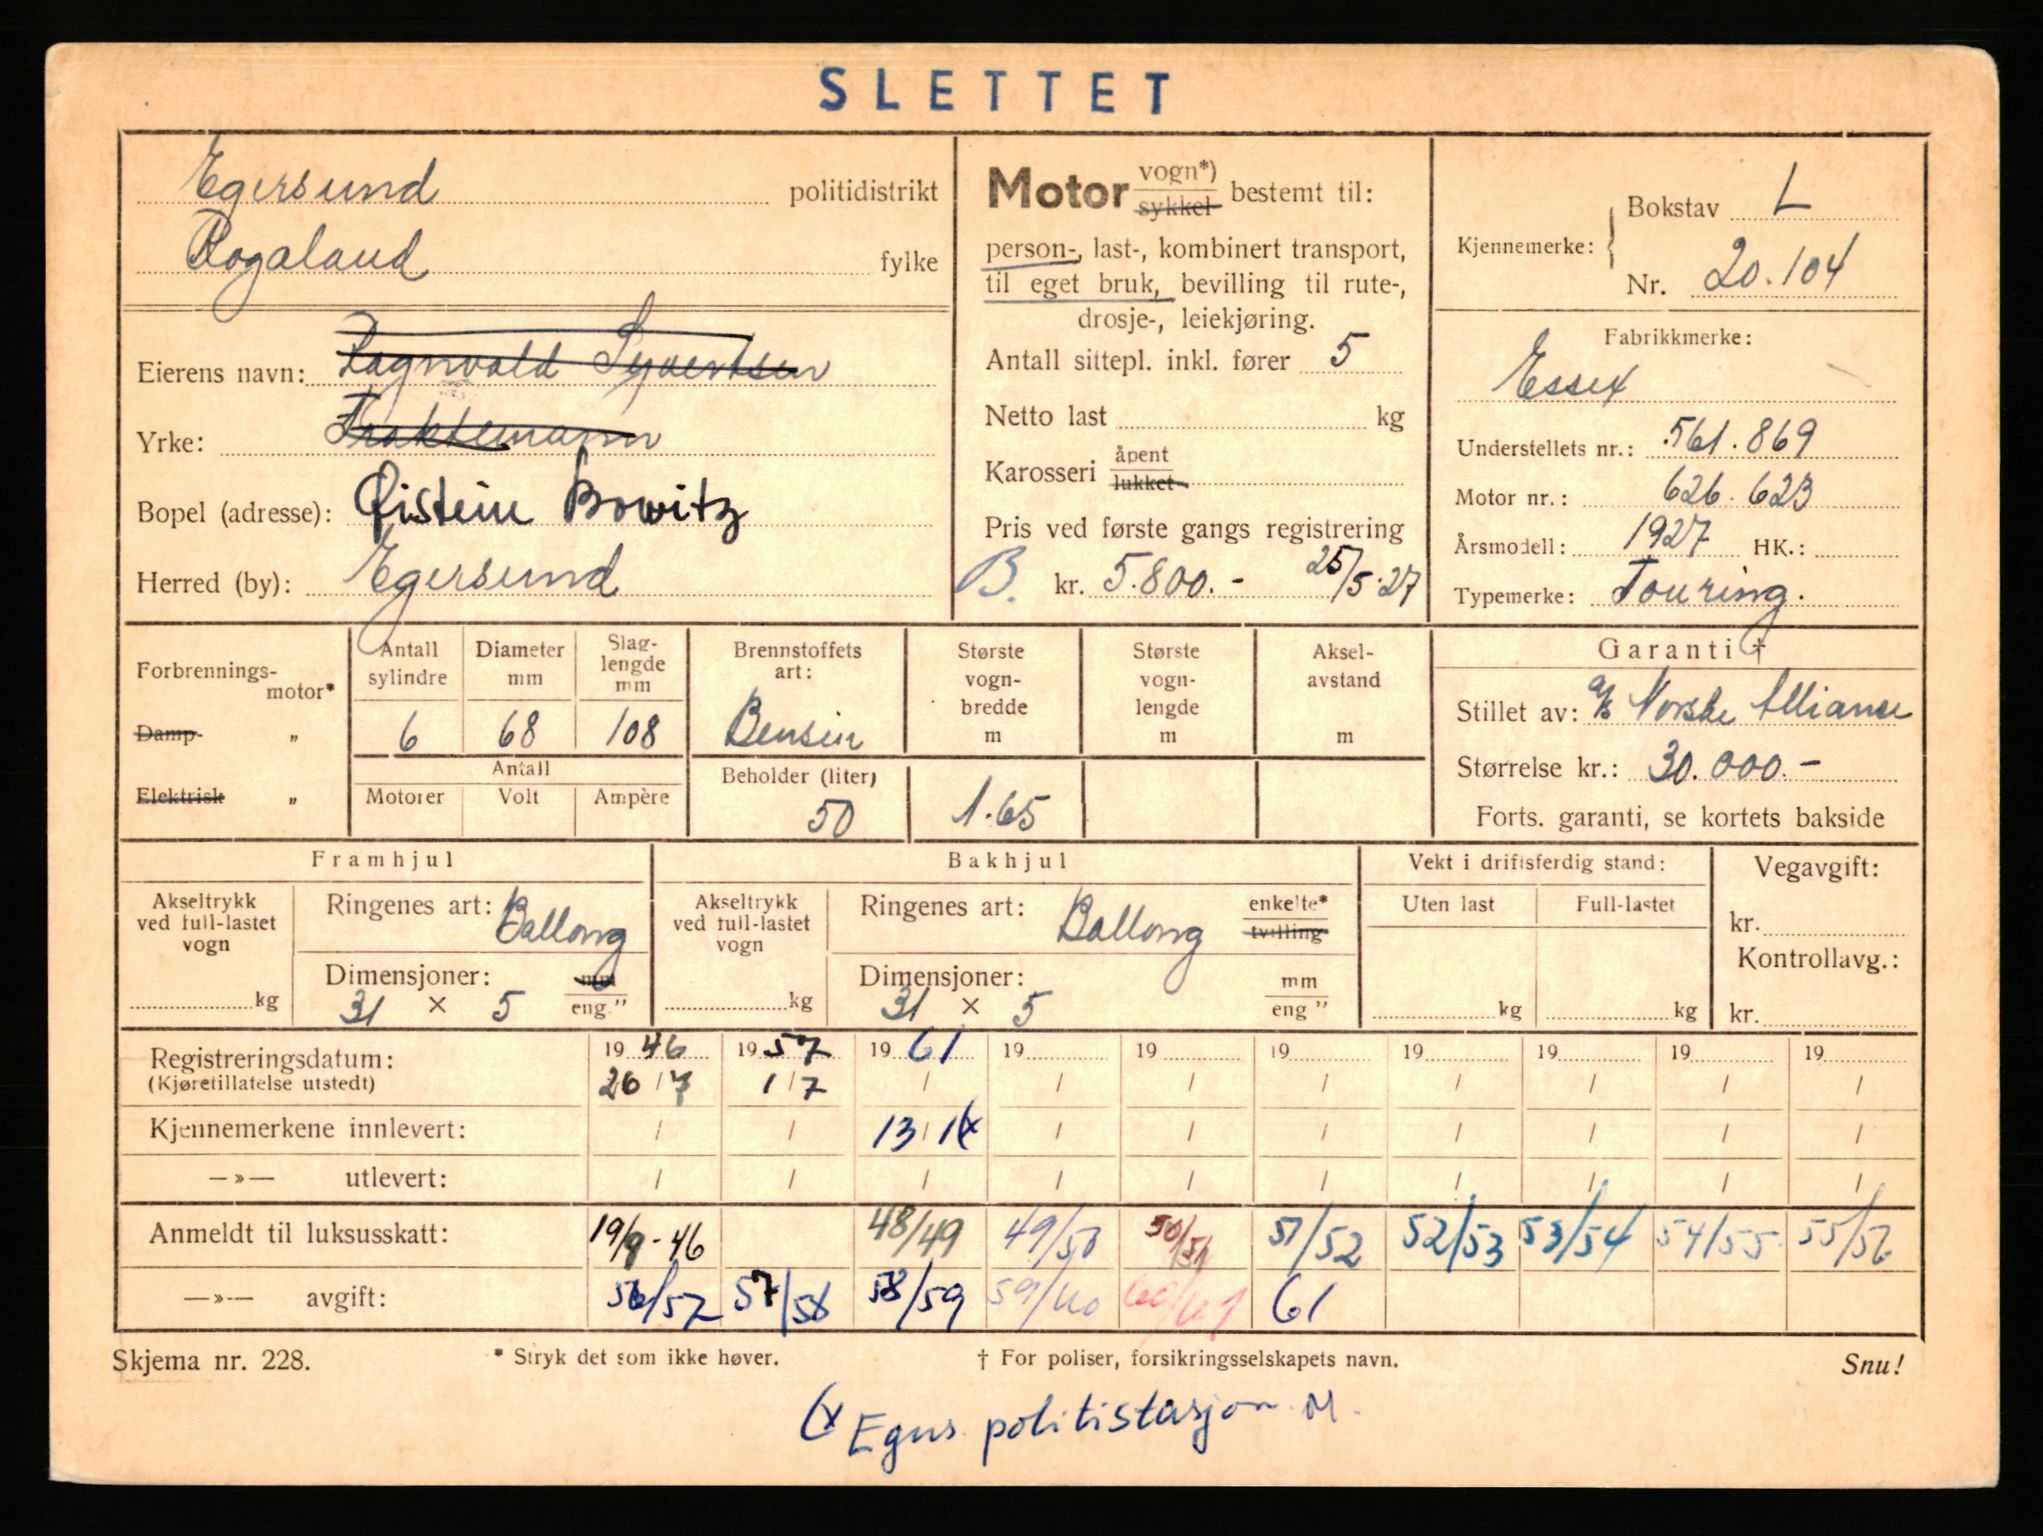 SLETTET
Egersund politidistrikt
Rogaland fylke
Eierens navn: Ragnvald Syvertsen
Yrke: Fraktemann
Bopel (adresse): Øistein Bowitz
Herred (by): Egersund
Motor vogn*) sykkel bestemt til:
person-, last-, kombinert transport,
til eget bruk, bevilling til rute-,
drosje-, leiekjøring.
Antall sittepl. inkl. fører 5
Netto last kg
Karosseri åpent lukket
Pris ved første gangs registrering
B. kr. 5.800.- 25/5-27
Kjennemerke: Bokstav L
Nr. 20.104
Fabrikkmerke:
Essex
Understellets nr.: 561.869
Motor nr.: 626.623
Årsmodell: 1927 HK.:
Typemerke: Touring.
Forbrennings-motor*
Damp- „
Elektrisk „
Antall sylindre Diameter mm Slag-lengde mm
6 68 108
Antall
Motorer Volt Ampère
Brennstoffets art:
Bensin
Beholder (liter)
50
Største vogn-bredde m
1.65
Største vogn-lengde m
Aksel-avstand m
Garanti †
Stillet av: A/S Norske Alliance
Størrelse kr.: 30.000.-
Forts. garanti, se kortets bakside
Framhjul
Akseltrykk ved full-lastet vogn
kg
Ringenes art: Ballong
Dimensjoner: mm
31 × 5 eng."
Bakhjul
Akseltrykk ved full-lastet vogn
kg
Ringenes art: Ballong enkelte* tvilling
Dimensjoner: mm
31 × 5 eng "
Vekt i driftsferdig stand:
Uten last Full-lastet
kg kg
Vegavgift:
kr.
Kontrollavg.:
kr.
Registreringsdatum: 1946 1957 1961 19 19 19 19 19 19 19
(Kjøretillatelse utstedt) 26/7 1/7 / / / / / / / /
Kjennemerkene innlevert: / / 13/1 (x / / / / / / /
—»— utlevert: / / / / / / / / / /
Anmeldt til luksusskatt: 19/9-46 48/49 49/50 50/51 51/52 52/53 53/54 54/55 55/56
—»— avgift: 56/57 57/58 58/59 59/60 60/61 61
Skjema nr. 228. * Stryk det som ikke høver. † For poliser, forsikringsselskapets navn. Snu!
(x Egers. politistasjon